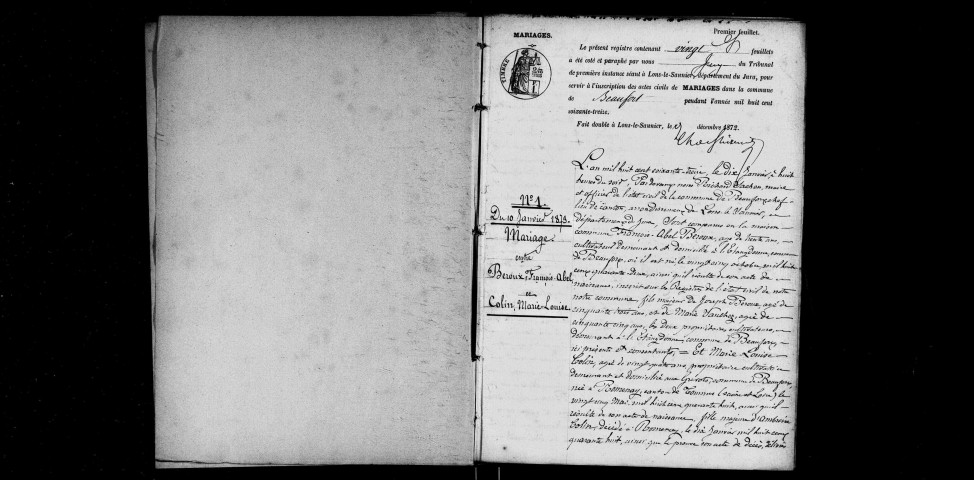 Premier feuillet.
MARIAGES.
Le présent registre contenant vingt feuillets
a été coté et paraphé par nous Juge du Tribunal
de première instance séant à Lons-le-Saunier, département du Jura, pour
servir à l'inscription des actes civils de MARIAGES dans la commune
de Beaufort pendant l'année mil huit cent
soixante-treize.
Fait double à Lons-le-Saunier, le décembre 1872.
TIMBRE
N° 1.
Du 10 Janvier 1873.
Mariage
entre
Beroux, François-Abel,
et
Colin, Marie-Louise.
L'an mil huit cent soixante-treize, le dix Janvier, à huit
heures du soir, Pardevant nous maire
et officier de l'état civil de la commune de Beaufort, chef
lieu de canton, arrondissement de Lons-le-Saunier,
département du Jura, Sont comparus en la maison
commune François-Abel Beroux, âgé de trente ans,
cultivateur demeurant et domicilié à l'Etangdonne, commune
de Beaufort, où il est né le vingt cinq octobre mil huit
cent quarante deux, ainsi qu'il résulte de son acte de
naissance, inscrit sur les Registres de l'état civil de notre
notre commune, fils majeur de Joseph Beroux, âgé de
cinquante trois ans, et de Marie âgée de
cinquante cinq ans, les deux propriétaires cultivateurs,
demeurant à l'Etangdonne, commune de Beaufort,
ici présents et consentants, = Et Marie Louise
Colin, âgée de vingt quatre ans, propriétaire cultivatrice
demeurant et domiciliée aux commune de Beaufort
née à Romenay, canton de (Saône et Loire) le
vingt cinq Mai, mil huit cent quarante huit, ainsi qu'il
résulte de son acte de naissance, fille majeure d'Ambroise
Colin, décédé à Romenay, le dix Janvier mil huit cent
quarante huit, ainsi que le prouve son acte de décès,